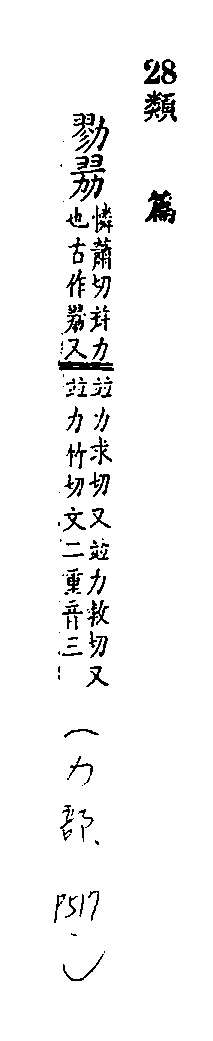 28類篇
勠勥憐蕭切并力
也古作勥又
竝力求切又竝力救切又
竝力竹切文二重音三
(力部、P517)